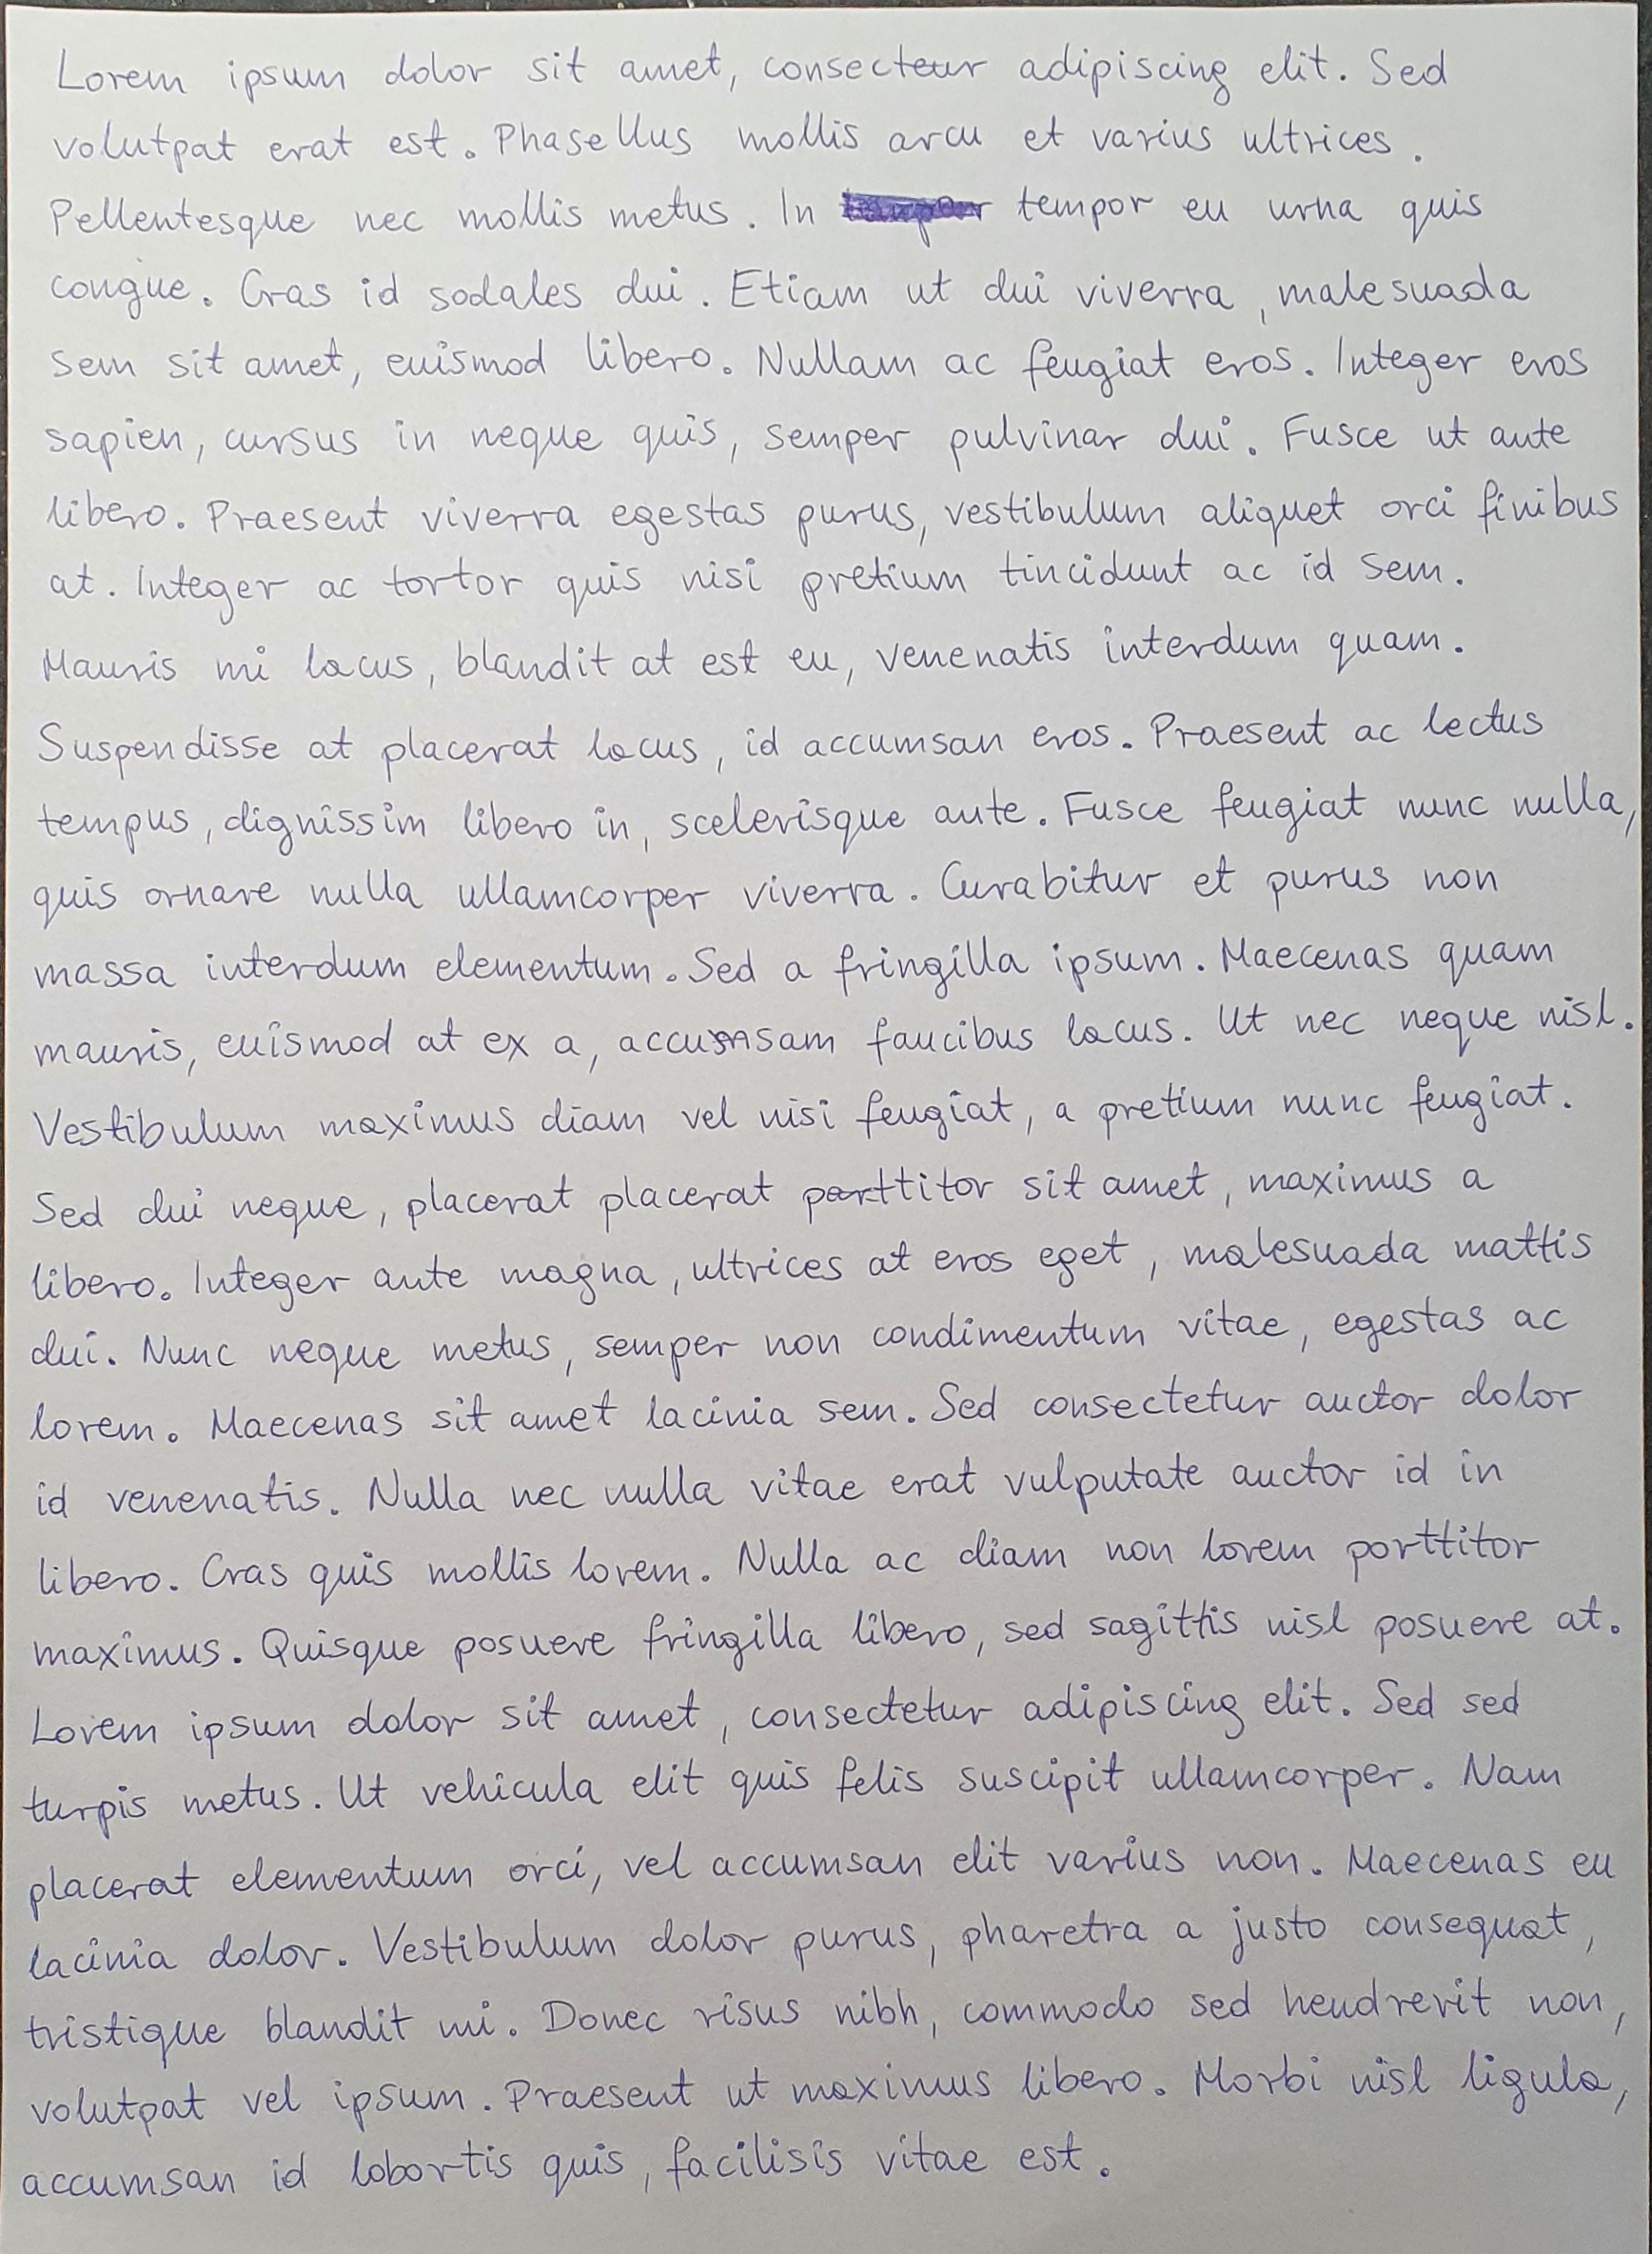 Lorem ipsum dolor sit amet, consecteur adipiscing elit. Sed
volutpat erat est. Phasellus mollis arcu et varius ultrices.
Pellentesque nec mollis metus. In tempor eu urna quis
congue. Cras id sodales dui. Etiam ut dui viverra, malesuada
sem sit amet, euismod libero. Nullam ac feugiat eros. Integer eros
sapien, cursus in neque quis, semper pulvinar dui. Fusce ut ante
libero. Praesent viverra egestas purus, vestibulum aliquet orci finibus
at. Integer ac tortor quis nisi pretium tincidunt ac id sem.
Mauris mi lacus, blandit at est eu, venenatis interdum quam.
Suspendisse at placerat lacus, id accumsan eros. Praesent ac lectus
tempus, dignissim libero in, scelerisque ante. Fusce feugiat nunc nulla,
quis ornare nulla ullamcorper viverra. Curabitur et purus non
massa interdum elementum. Sed a fringilla ipsum. Maecenas quam
mauris, euismod at ex a, accumsam faucibus lacus. Ut nec neque nisl.
Vestibulum maximus diam vel nisi feugiat, a pretium nunc feugiat.
Sed dui neque, placerat placerat porttitor sit amet, maximus a
libero. Integer ante magna, ultrices at eros eget, malesuada mattis
dui. Nunc neque metus, semper non condimentum vitae, egestas ac
lorem. Maecenas sit amet lacinia sem. Sed consectetur auctor dolor
id venenatis. Nulla nec nulla vitae erat vulputate auctor id in
libero. Cras quis mollis lorem. Nulla ac diam non lorem porttitor
maximus. Quisque posuere fringilla libero, sed sagittis nisl posuere at.
Lorem ipsum dolor sit amet, consectetur adipiscing elit. Sed sed
turpis metus. Ut vehicula elit quis felis suscipit ullamcorper. Nam
placerat elementum orci, vel accumsan elit varius non. Maecenas eu
lacinia dolor. Vestibulum dolor purus, pharetra a justo consequat,
tristique blandit mi. Donec risus nibh, commodo sed hendrerit non,
volutpat vel ipsum. Praesent ut maximus libero. Morbi nisl ligula,
accumsan id lobortis quis, facilisis vitae est.